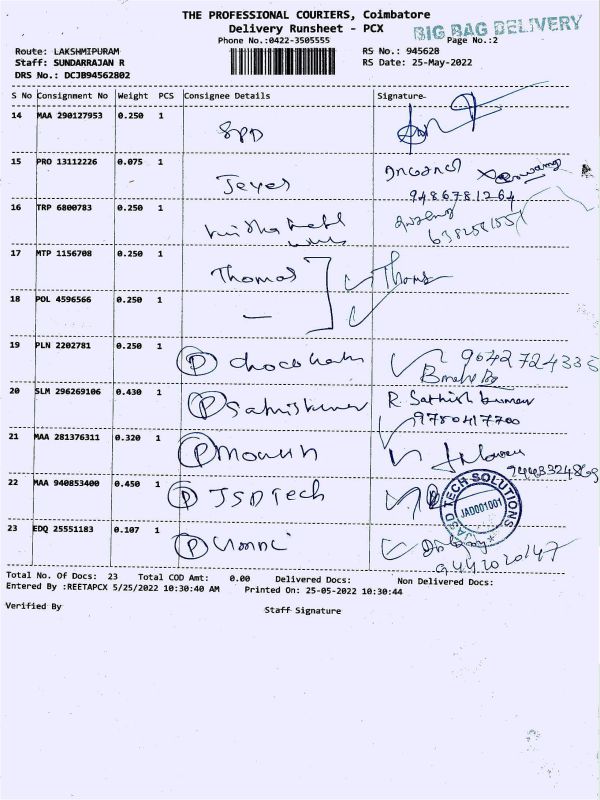 THE PROFESSIONAL COURIERS, Coimbatore
BIG BAG DELIVERY
Delivery Runsheet - PCX
Phone No.:0422-3505555
Page No.:2
Route: LAKSHMIPURAM
RS No.: 945628
Staff: SUNDARRAJAN R
RS Date: 25-May-2022
DRS No.: DCJB94562802
S No Consignment No Weight PCS Consignee Details Signature
14 MAA 290127953 0.250 1 SPD
15 PRO 13112226 0.075 1 Jeyes
9486781264
16 TRP 6800783 0.250 1
17 MTP 1156708 0.250 1 Thomas Thomas
18 POL 4596566 0.250 1 —
19 PLN 2202781 0.250 1 P 9042724335
20 SLM 296269106 0.430 1 P Sathiskumar R. Sathish kumar
9750417700
21 MAA 281376311 0.320 1 P
22 MAA 940853400 0.450 1 P JSD Tech
JASD TECH SOLUTIONS
JAD001001
23 EDQ 25551183 0.107 1 P
9442020147
Total No. Of Docs: 23 Total COD Amt: 0.00 Delivered Docs: Non Delivered Docs:
Entered By :REETAPCX 5/25/2022 10:30:40 AM Printed On: 25-05-2022 10:30:44
Verified By Staff Signature